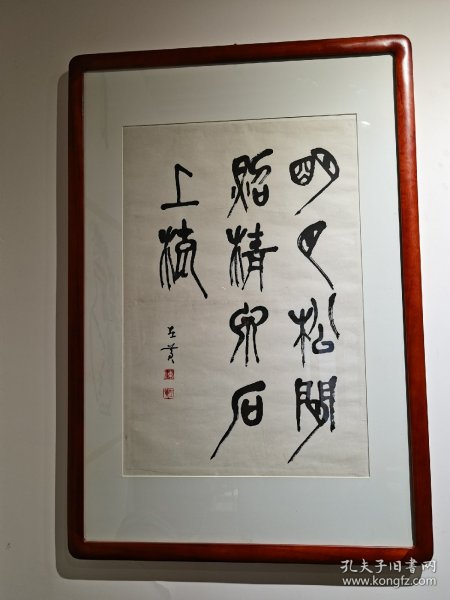 明月松間
照清泉石
上流
孔夫子旧书网
www.kongfz.com